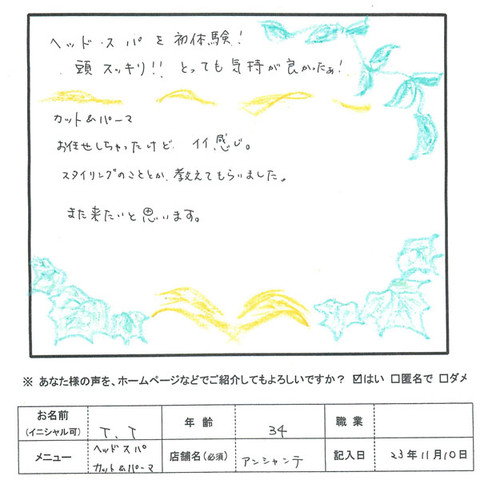 ヘッド・スパを初体験!
頭スッキリ!! とっても気持が良かったぁ!
カット&パーマ
お任せしちゃったけど、イイ感じ。
スタイリングのこととか、教えてもらいました。
また来たいと思います。
※ あなた様の声を、ホームページなどでご紹介してもよろしいですか? ☑はい □匿名で □ダメ
お名前 (イニシャル可) T.T 年齢 34 職業
メニュー ヘッドスパ カット&パーマ 店舗名(必須) アンシャンテ 記入日 23年11月10日